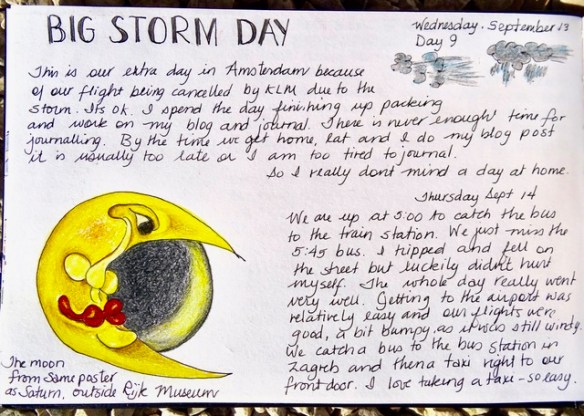 BIG STORM DAY
Wednesday. September 13
Day 9
This is our extra day in Amsterdam because
of our flight being cancelled by KLM due to the
storm. Its ok. I spend the day finishing up packing
and work on my blog and journal. There is never enough time for
journalling. By the time we get home, eat and I do my blog post
it is usually too late or I am too tired to journal.
So I really dont mind a day at home.
Thursday Sept 14
We are up at 5:00 to catch the bus
to the train station. We just miss the
5:45 bus. I tripped and fell on
the street but luckily didn't hurt
myself. The whole day really went
very well. Getting to the airport was
relatively easy and our flights were
good, a bit bumpy as it was still windy.
We catch a bus to the bus station in
Zagreb and then a taxi right to our
front door. I love taking a taxi - so easy.
The moon
from same poster
as Saturn, outside Rijk Museum